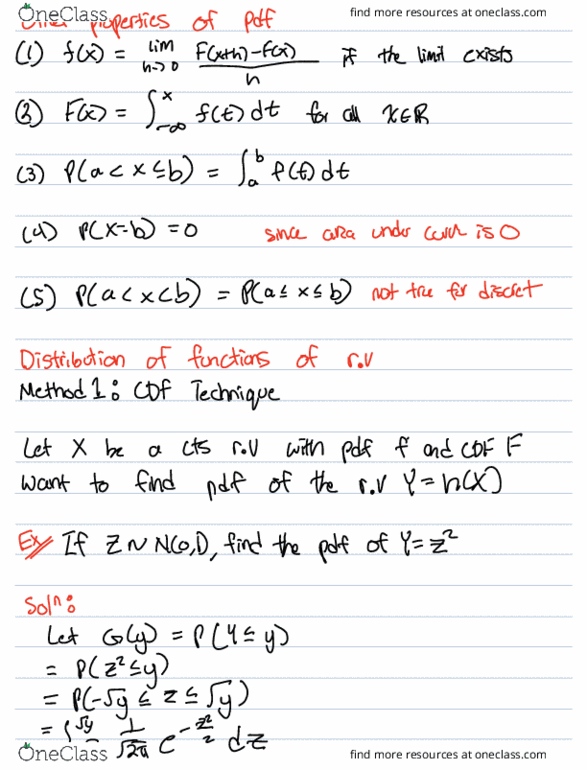 OneClass find more resources at oneclass.com
Other properties of pdf
(1) f(x) = lim h→0 F(x+h)-F(x) / h if the limit exists
(2) F(x) = ∫_{-∞}^{x} f(t) dt for all x∈R
(3) P(a < x ≤ b) = ∫_a^b f(t) dt
(4) P(X=b) = 0 since area under curve is 0
(5) P(a < x < b) = P(a ≤ x ≤ b) not true for discret
Distribution of functions of r.v
Method 1: CDF Technique
Let X be a cts r.v with pdf f and CDF F
want to find pdf of the r.v Y = h(X)
Ex If Z ~ N(0,1), find the pdf of Y = z²
Solⁿ:
Let G(y) = P(Y ≤ y)
= P(z² ≤ y)
= P(-√y ≤ z ≤ √y)
= ∫^{√y} 1/√2π e^{-z²/2} dz
OneClass find more resources at oneclass.com